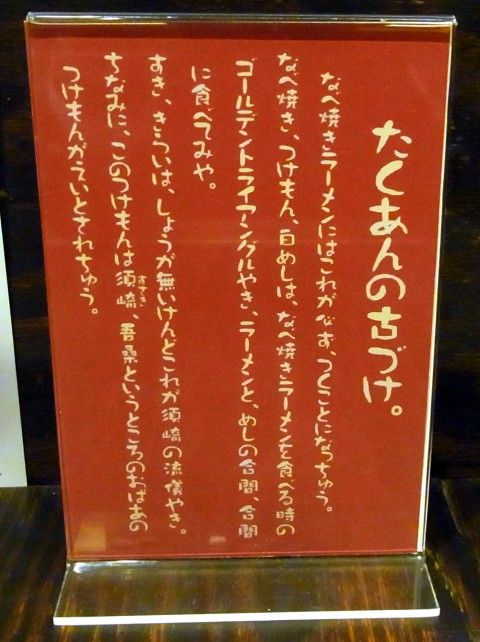 たくあんの古づけ。
なべ焼きラーメンにはこれが必ず、つくことになっちゅう。
なべ焼き、つけもん、白めしは、なべ焼きラーメンを食べる時の
ゴールデントライアングルやき、ラーメンと、めしの合間、合間
に食べてみや。
すき、きらいは、しょうが無いけんどこれが須崎の流儀やき。
ちなみに、このつけもんは須崎、吾桑というところのおばあの
すさき
つけもんがえいとされちゅう。